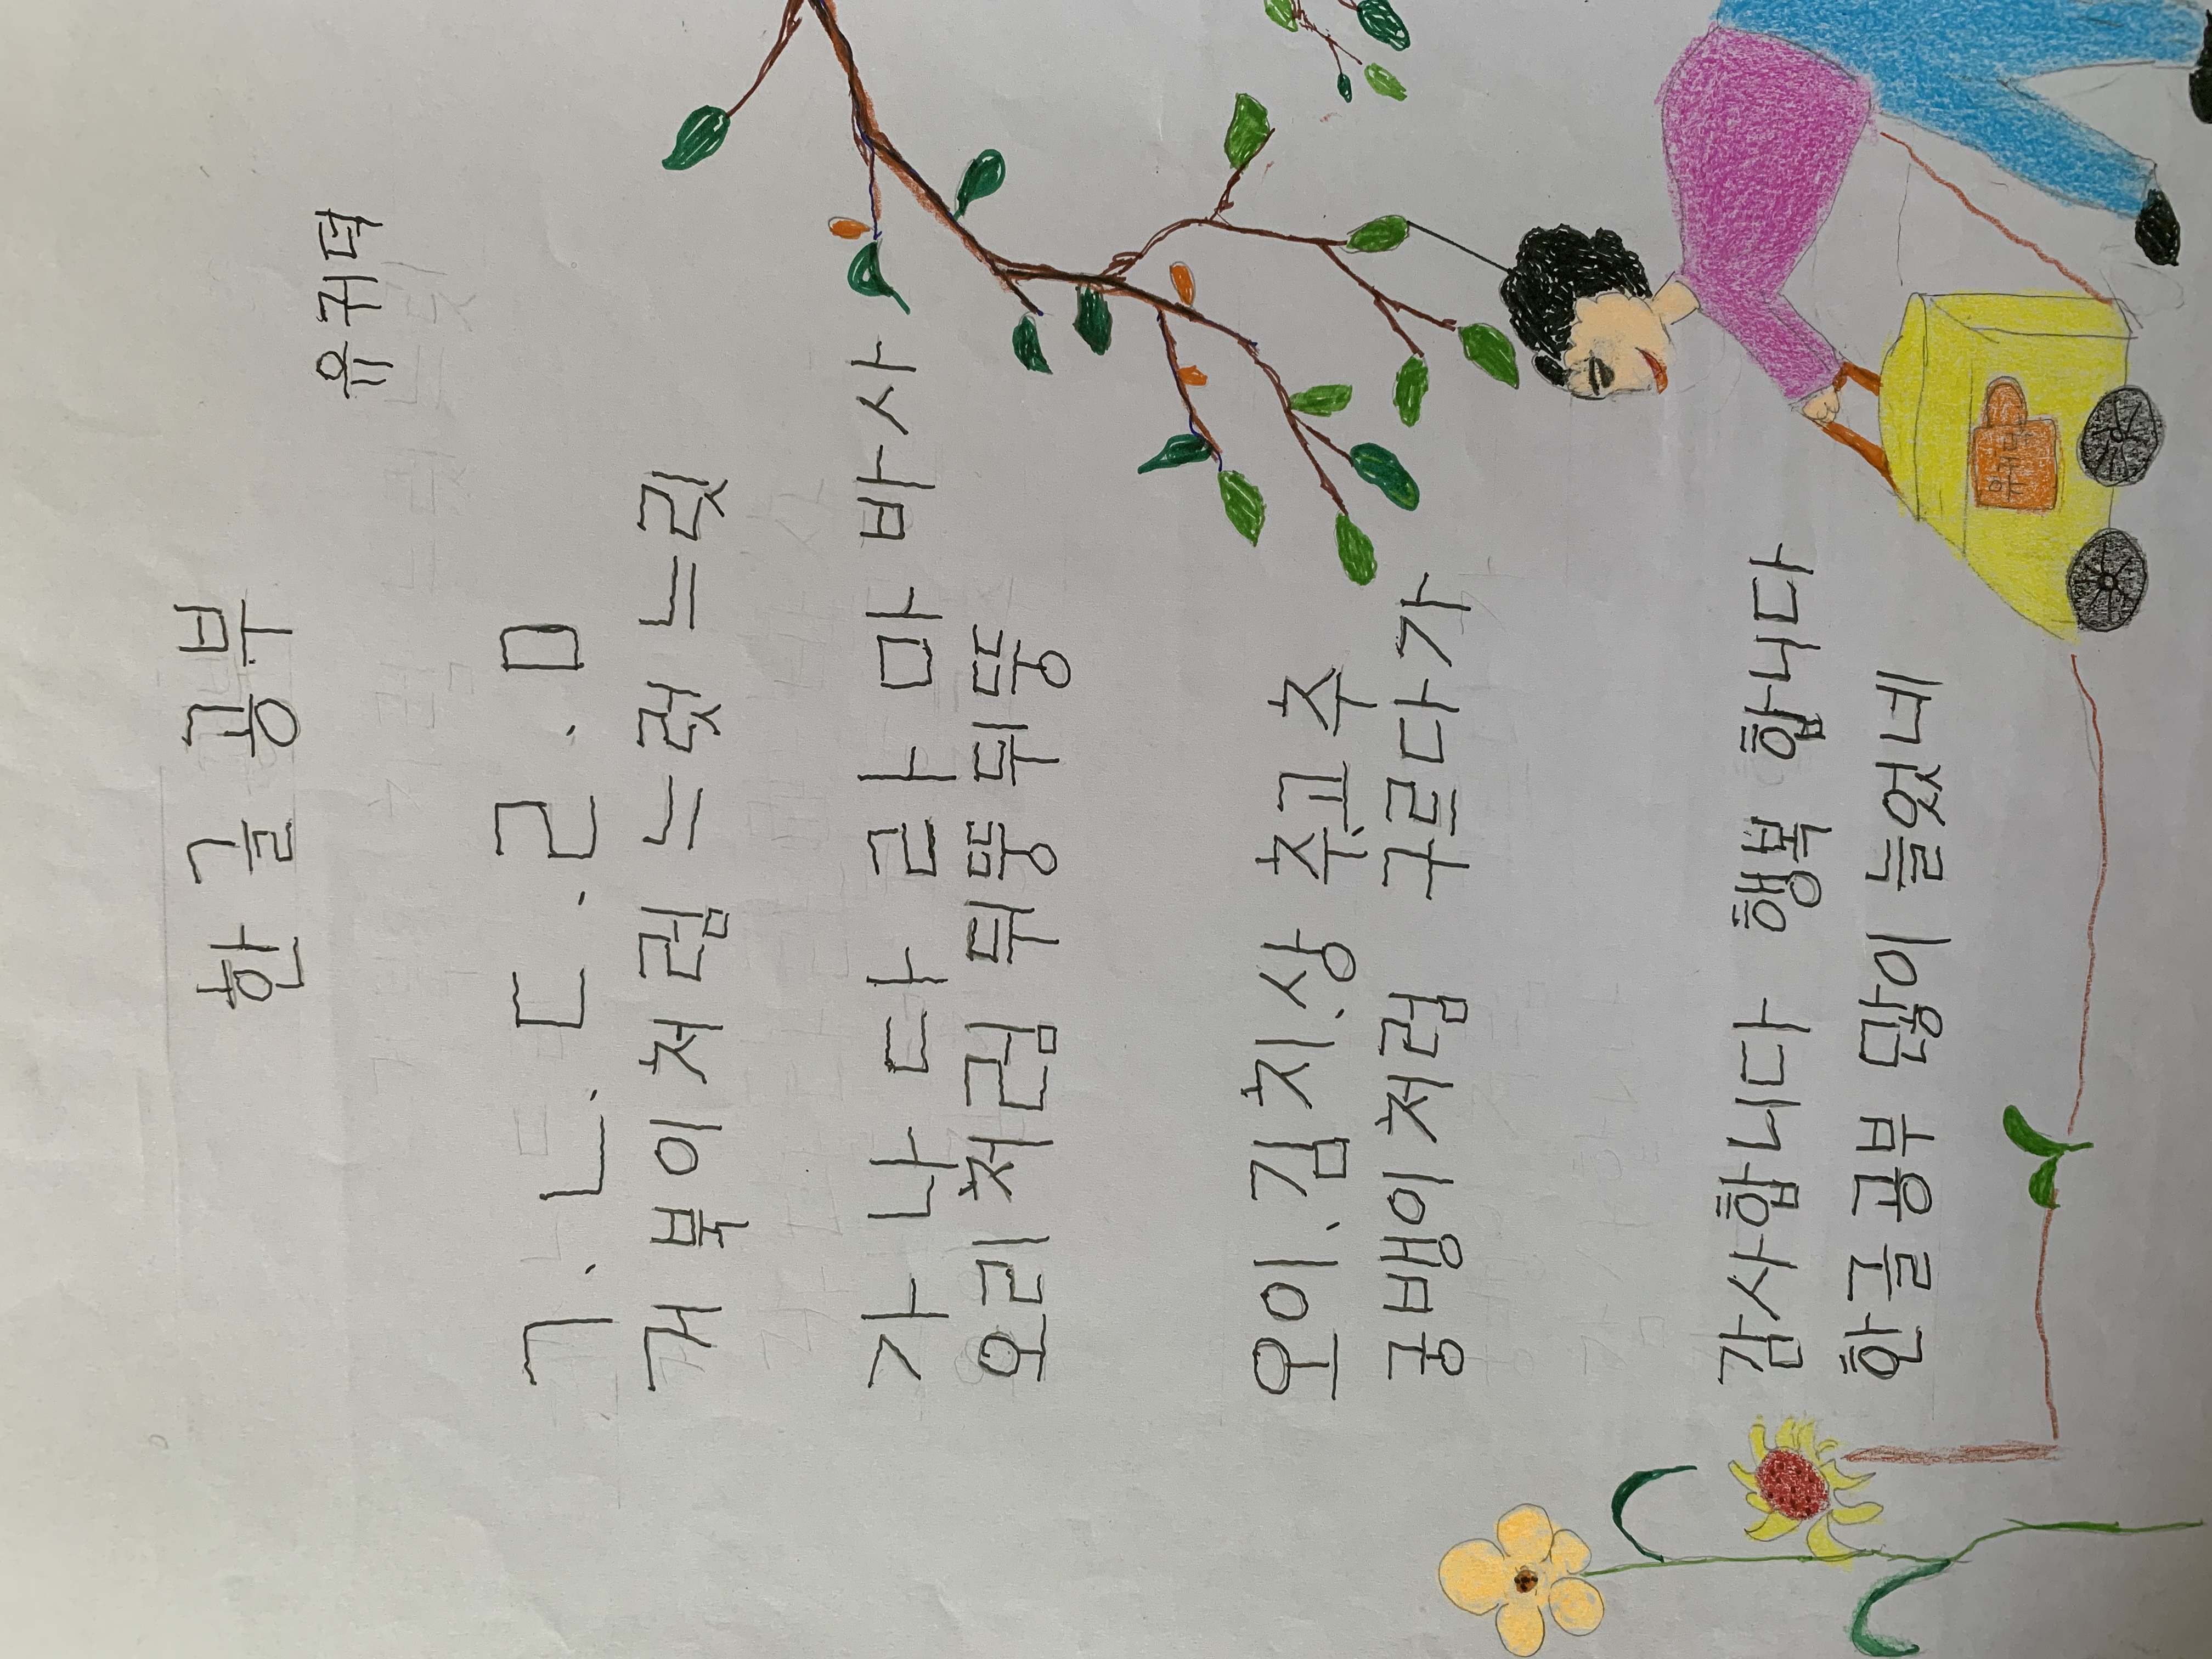 한글공부
유귀덕
ㄱ.ㄴ.ㄷ.ㄹ.ㅁ
개북이처림 느렀느릿
가 나 다 라 마 바 사
오리처림 뒤뚱뒤뚱
오이.김치.상추.고추
굼뱅이처럼 구르다가
감사합니다 행복 합니다
한글공부 많이 늘었네